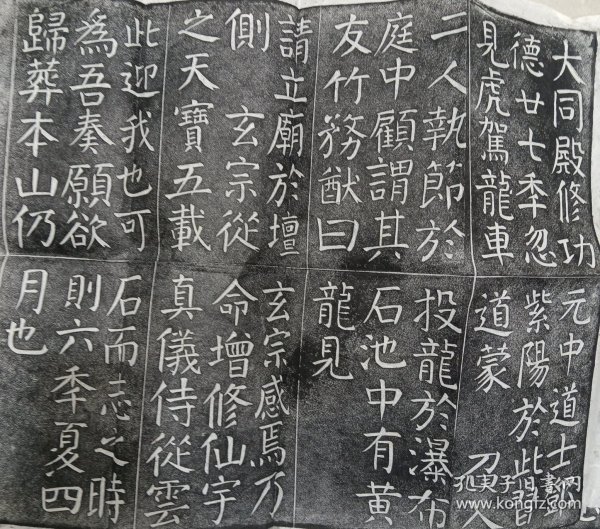 大同殿修功
德廿七季忽
見虎駕龍車
二人執節於
庭中顧謂其
友竹務猷曰
請立廟於壇
側 玄宗從
之天寶五載
此迎我也可
為吾奏願欲
歸葬本山仍
元中道士
紫陽於此習
道蒙 召入
投龍於瀑布
石池中有黃
龍見
玄宗感焉乃
命增修仙宇
真儀侍從雲
石而志之時
則六季夏四
月也